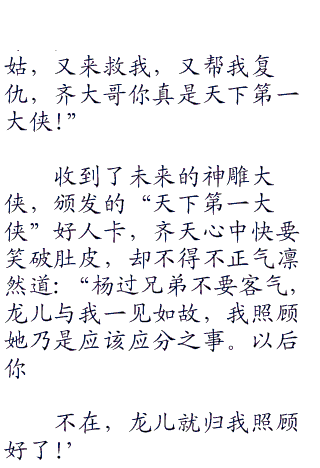 姑，又来救我，又帮我复
仇，齐大哥你真是天下第一
大侠！”
收到了未来的神雕大
侠，颁发的“天下第一大
侠”好人卡，齐天心中快要
笑破肚皮，却不得不正气凛
然道：“杨过兄弟不要客气，
龙儿与我一见如故，我照顾
她乃是应该应分之事。以后
你
不在，龙儿就归我照顾
好了！’